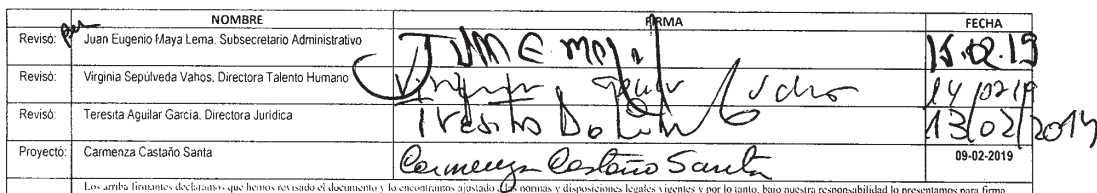 NOMBRE FIRMA FECHA
Revisó: Juan Eugenio Maya Lema. Subsecretario Administrativo 15.02.19
Revisó: Virginia Sepúlveda Vahos, Directora Talento Humano 14/02/19
Revisó: Teresita Aguilar Garcia. Directora Jurídica 13/02/2019
Proyectó: Carmenza Castaño Santa Carmenza Castaño Santa 09-02-2019
Los arriba firmantes declaramos que hemos revisado el documento y lo encontramos ajustado a las normas y disposiciones legales vigentes y por lo tanto, bajo nuestra responsabilidad lo presentamos para firma